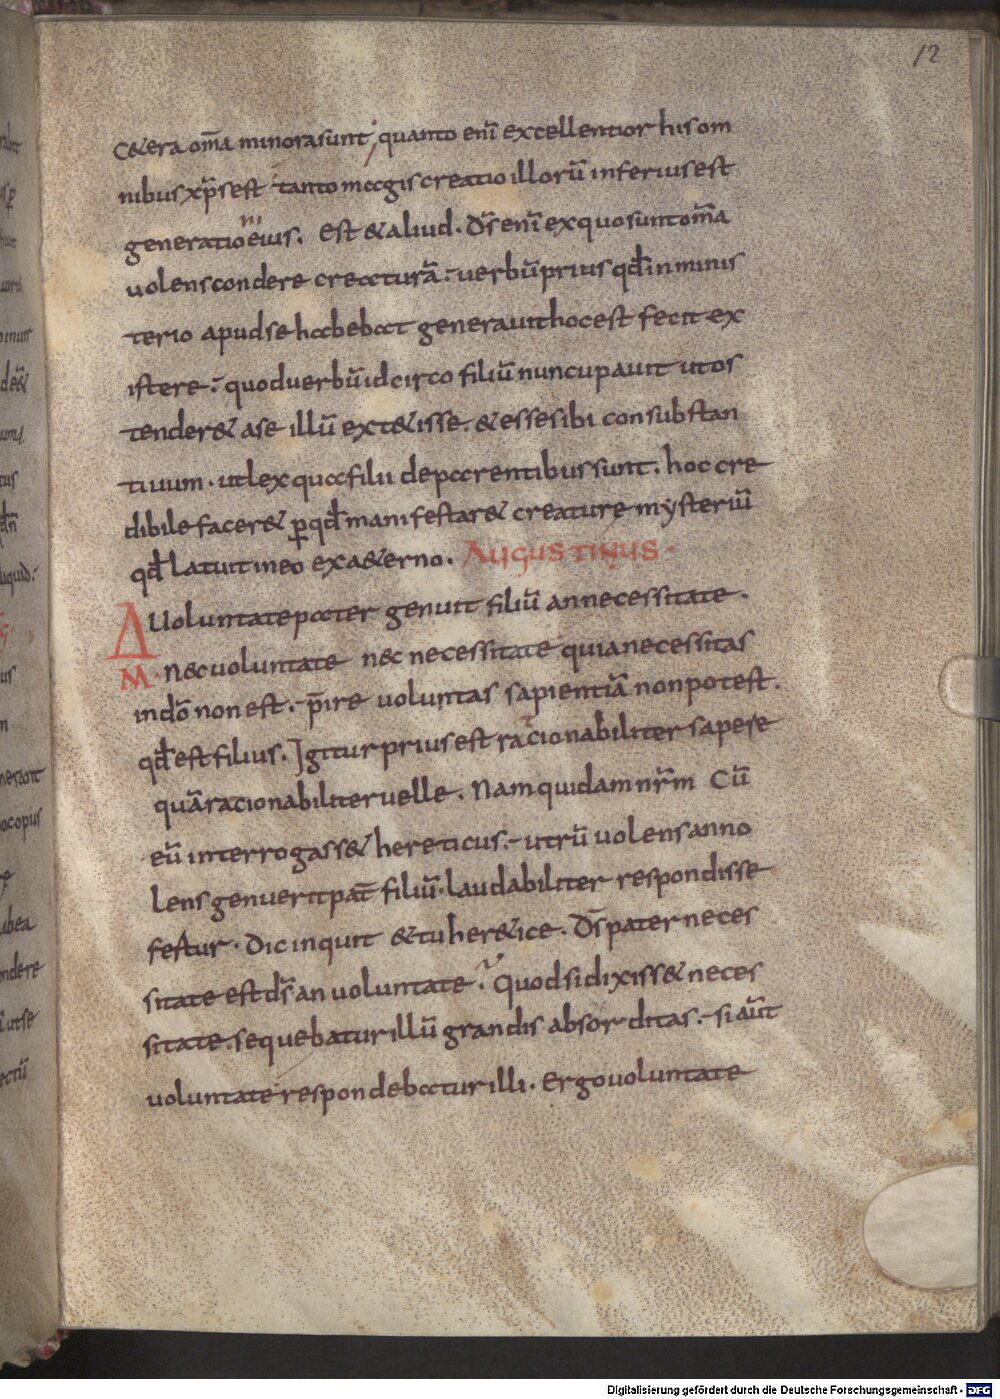 12
c&era om̅a minora sunt, quanto eni̅ excellentior his om
nibus xp̅s est tanto magis creatio illoru̅ inferius est
generatio ni eius. Est & aliud. Ds̅ eni̅ ex quo sunt om̅a
uolens condere creatura̅. uerbu̅ prius qd̅ in minis
terio apud se habebat generauit hoc est fecit ex
istere. quod uerbu̅ idcirco filiu̅ nuncupauit ut os
tender& a se illu̅ extetisse. & esse sibi consubstan
tiuum. ut ex qua filii de parentibus sunt. hoc cre
dibile facer& p̱ qd̅ manifestar& creature mysteriu̅
qd̅ latuit in eo ex a&erno. AUGUSTINUS.
A Uoluntate pater genuit filiu̅ an necessitate.
M. Nec uoluntate nec necessitate quia necessitas
in do̅ non est. p̅ire uoluntas sapientia̅ non potest.
qd̅ est filius. Igitur prius est racionabiliter sapere
qua̅ racionabiliter uelle. Nam quidam nr̅m Cu̅
eu̅ interrogass& hereticus. utru̅ uolens an no
lens genuerit pat̅ filiu̅. laudabiliter respondisse
fertur. Dic inquit & tu her&ice. Ds̅ pater neces
sitate est ds̅ an uoluntate. Quod si dixiss& neces
sitate. sequebatur illu̅ grandis absorditas. si aut̅
uoluntate respondebatur illi. Ergo uoluntate
Digitalisierung gefördert durch die Deutsche Forschungsgemeinschaft - DFG